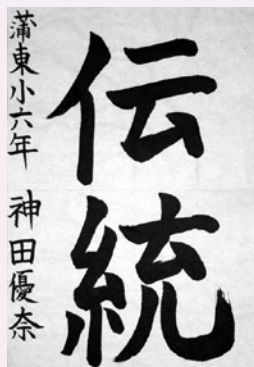 伝統
蒲東小六年 神田優奈